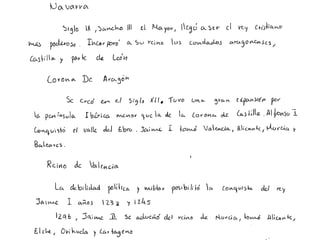 Navarra
Siglo XI, Sancho III el Mayor, llegó a ser el rey cristiano
más poderoso. Incorporó a su reino los condados aragoneses,
Castilla y parte de León
Corona De Aragón
Se creó en el siglo XII. Tuvo una gran expansión por
la península Ibérica menor que la de la corona de Castilla. Alfonso I
conquistó el valle del Ebro. Jaime I tomó Valencia, Alicante, Murcia y
Baleares.
Reino de Valencia
La debilidad política y militar posibilitó la conquista del rey
Jaime I años 1232 y 1245
1296, Jaime II Se adueñó del reino de Murcia, tomó Alicante,
Elche, Orihuela y Cartagena